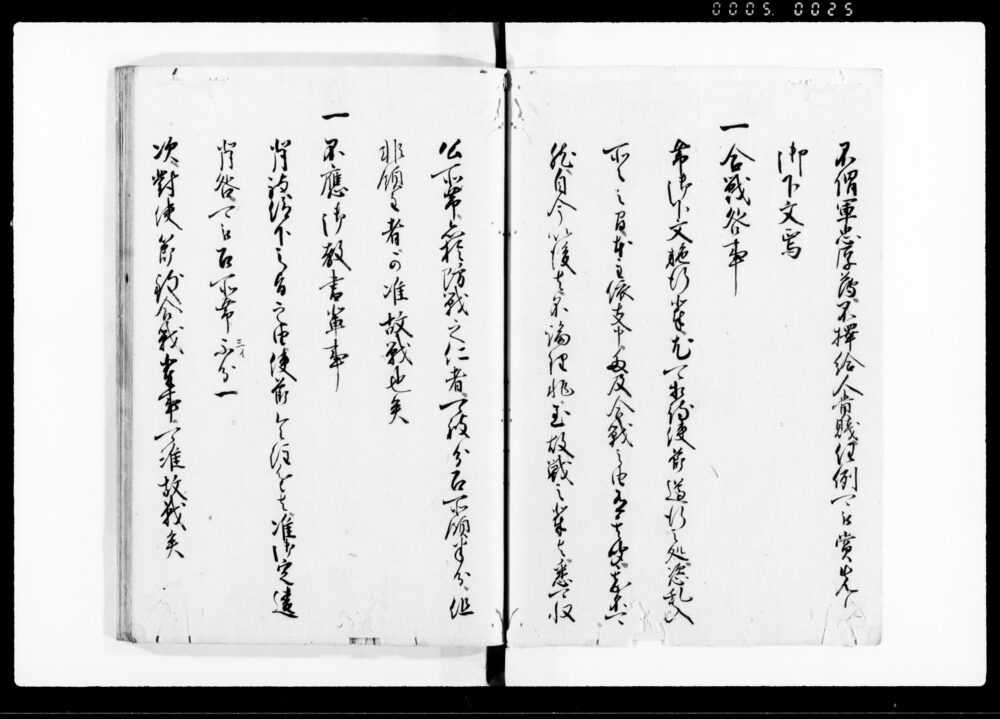 0005. 0025
不謂軍忠厚薄不擇給人貴賤任例可召賞先
御下文焉
一 合戦咎事
帯御下文施行輩尤可相待使節遵行之処恣乱入
所々之間本主依支申多及合戦之由有其聞
然自今以後者不論理非至故戦之輩者悉可収
公所帯亦於防戦之仁者可被分召所領半分但
非領主者可准故戦也矣
一 不應御教書輩事
背被仰下之旨之由使節令注進者准御定遣
背咎可召所帯三イ五分一
次對使節致合戦輩事可准故戦矣